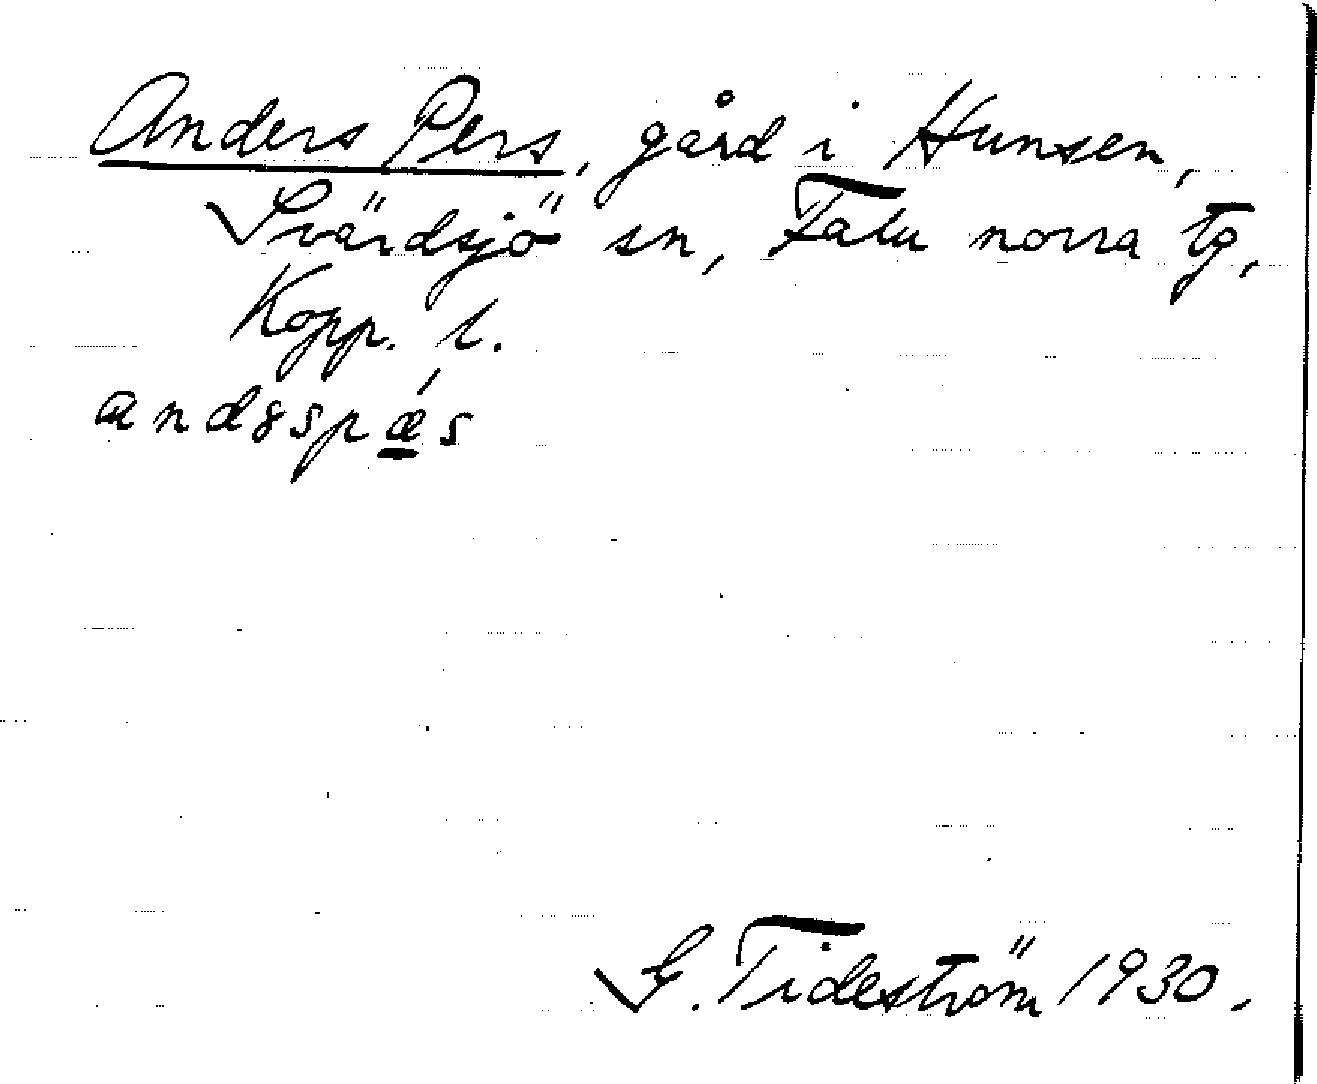 Anders Pers, gård i Hunsen,
Svärdsjö sn, Falu norra tg,
Kopp. l.
andsspǽs
G. Tideström 1930.